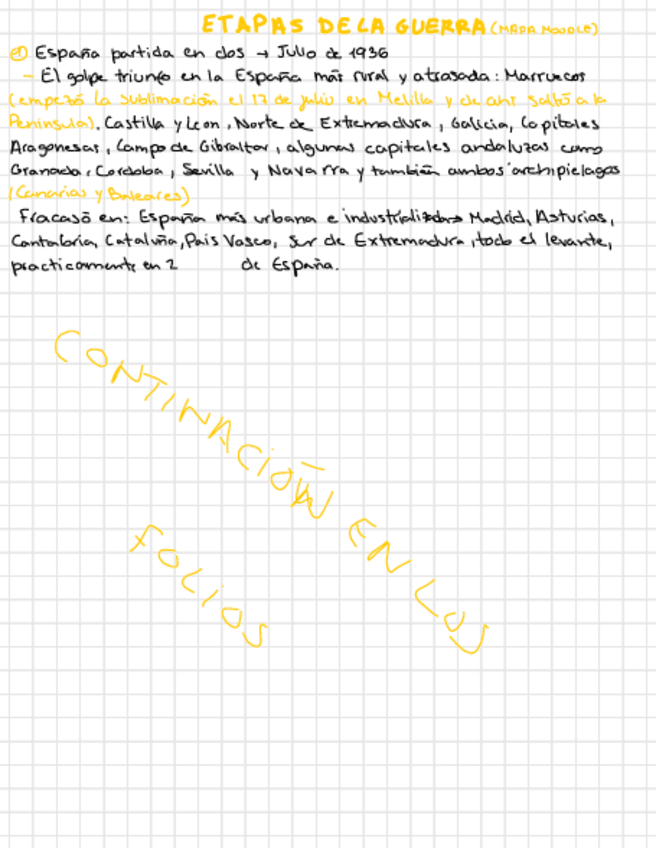 ETAPAS DE LA GUERRA (MAPA MOODLE)
① España partida en dos → Julio de 1936
- El golpe triunfo en la España más rural y atrasada: Marruecos
(empezó la sublimación el 17 de julio en Melilla y de ahí saltó a la
Peninsula). Castilla y Leon, Norte de Extremadura, Galicia, Capitales
Aragonesas, Campo de Gibraltar, algunas capitales andaluzas como
Granada, Cordoba, Sevilla y Navarra y también ambos archipielagos
(Canarias y Baleares)
Fracasó en: España más urbana e Madrid, Asturias,
Cantabria, Cataluña, Pais Vasco, sur de Extremadura, todo el levante,
practicamente en 2 de España.
CONTINACIÓN EN LOS
FOLIOS